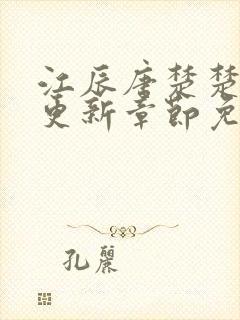 江辰唐楚楚
更新章节免
孔丽